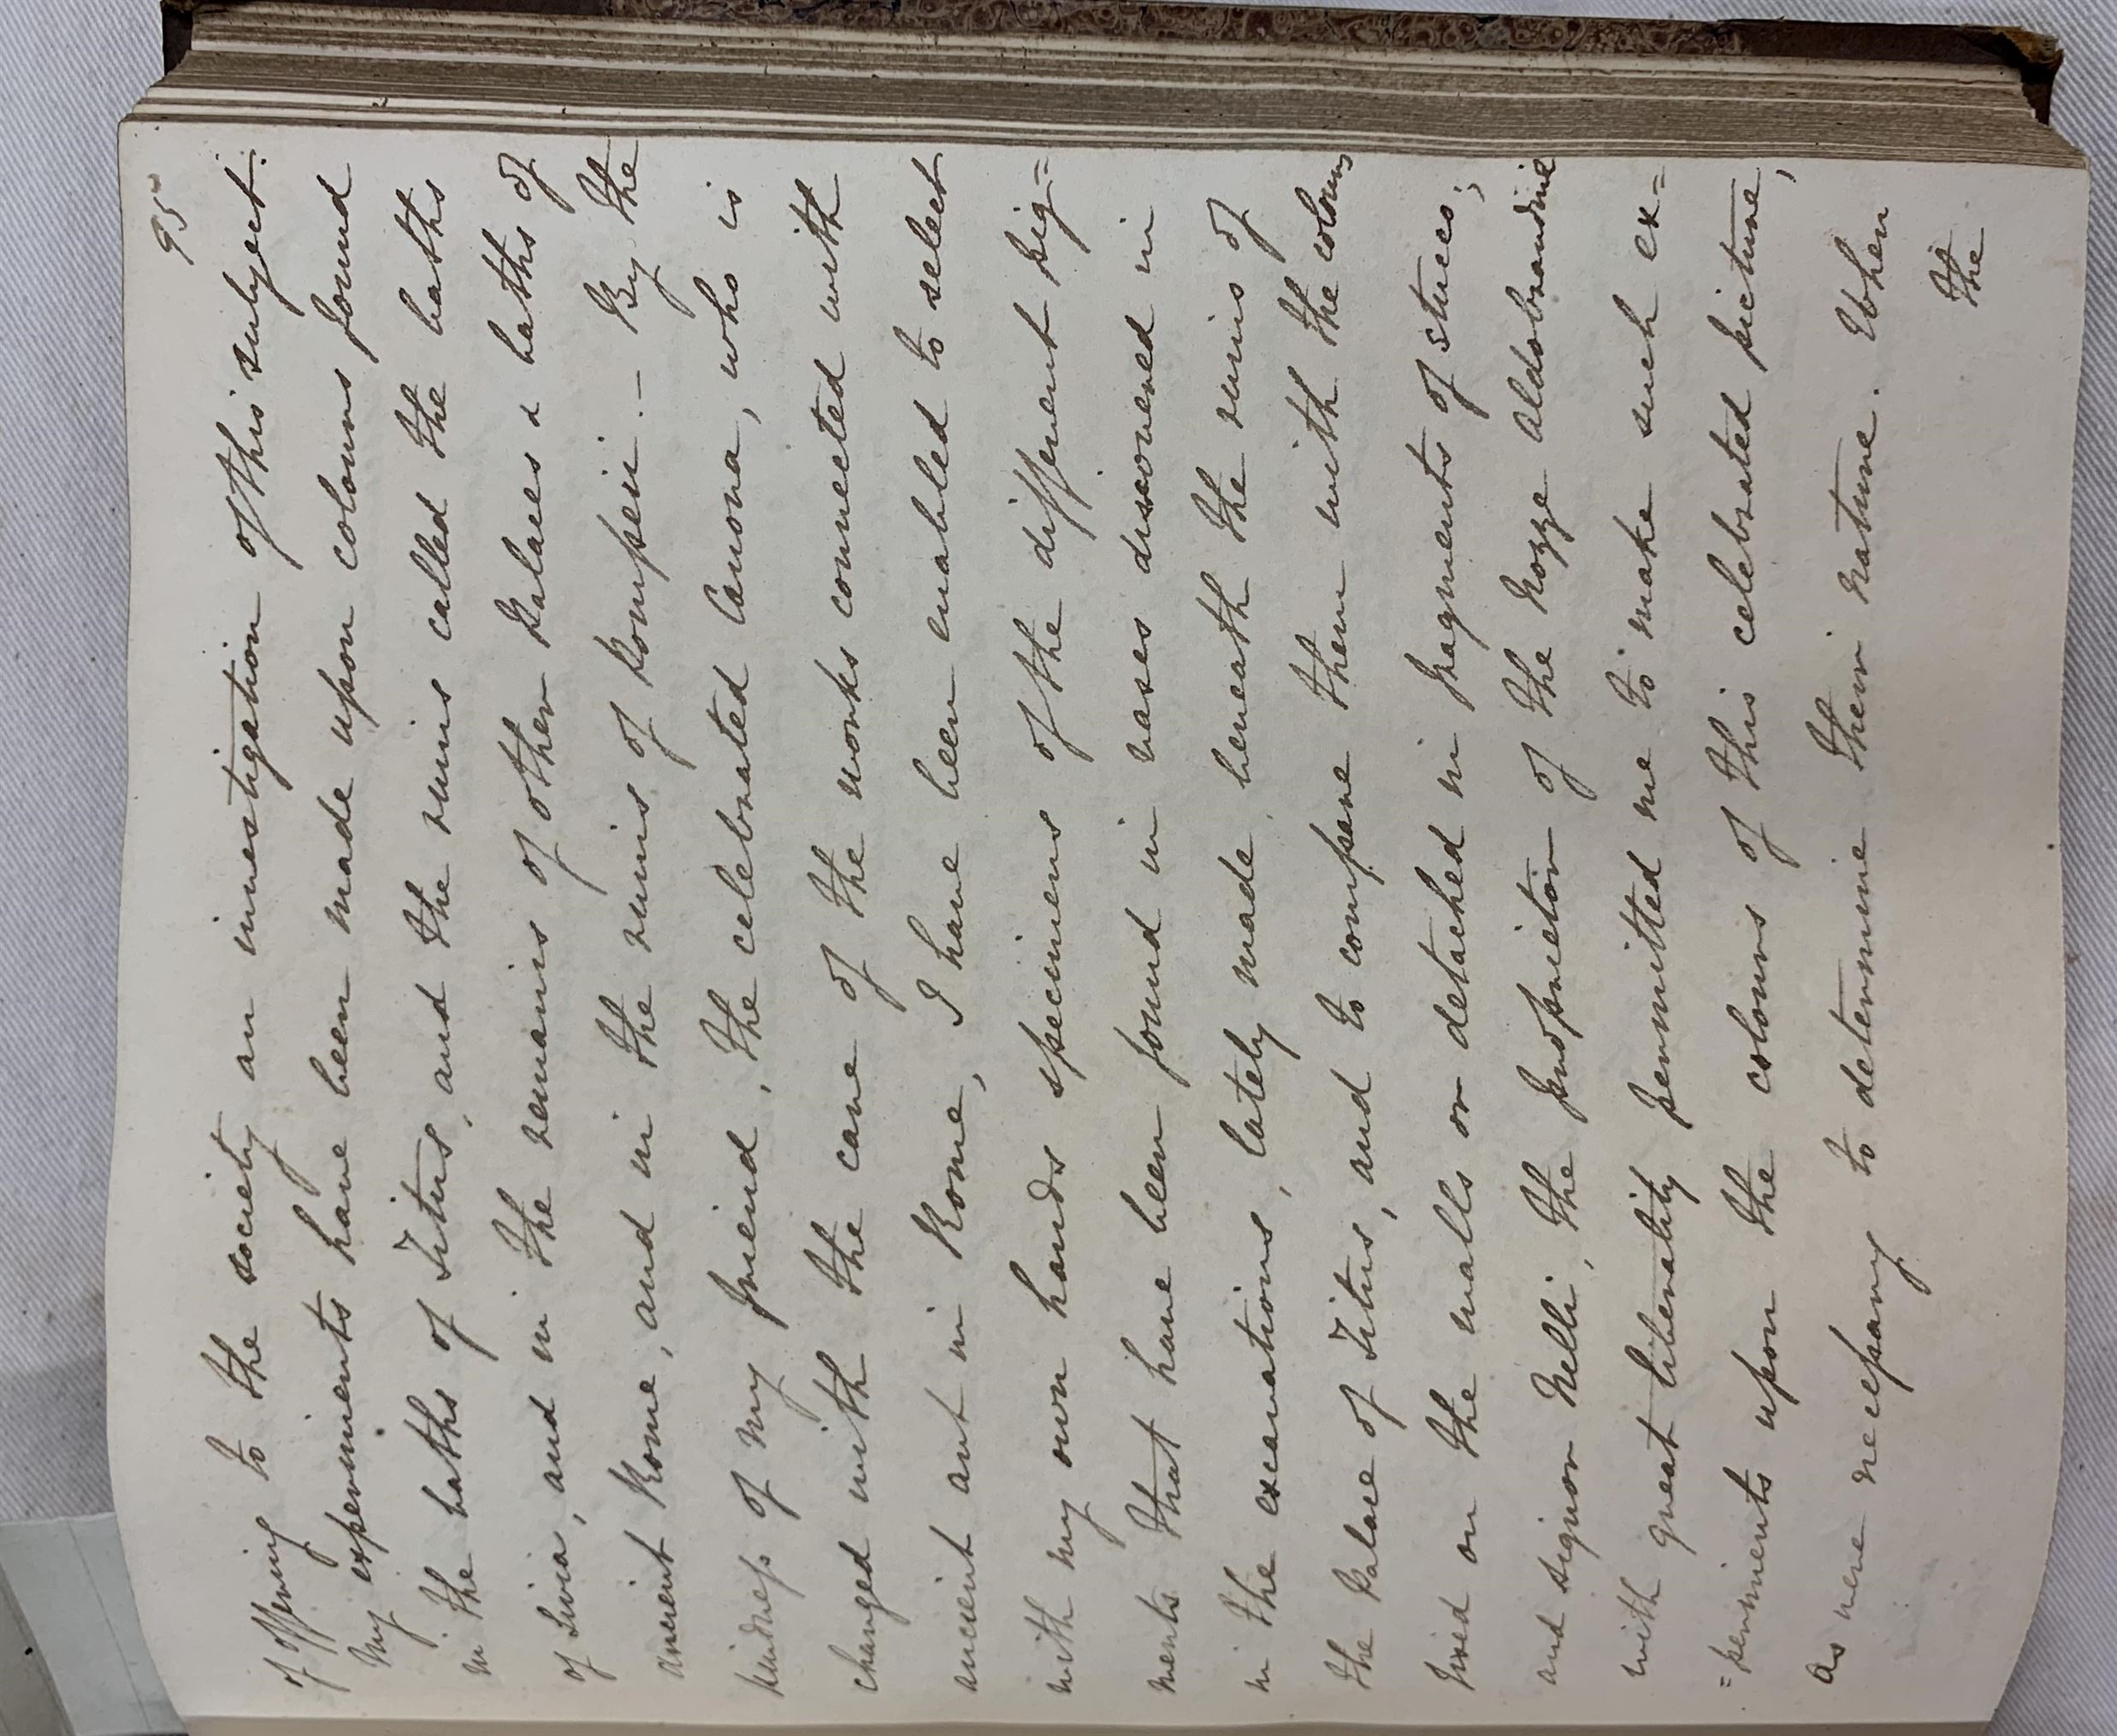 95
of offering to the society an investigation of this subject.
My experiments have been made upon colours found
in the baths of Titus, and the ruins called the baths
of Livia, and in the remains of other Palaces & baths of
ancient Rome, and in the ruins of Pompeii. – By the
kindness of my friend, the celebrated Canova, who is
changed with the care of the works connected with
ancient art in Rome, I have been enabled to select
with my own hands specimens of the different pig=
ments that have been found in vases discovered in
in the excavations, lately made, beneath the ruins of
the Palace of Titus, and to compare them with the colours
fixed on the walls or detached in fragments of stucco;
and signor Nelli, the proprietor of the Nozze Aldobrandine
with great liberality permitted me to make such ex=
=periments upon the colours of this celebrated picture,
as were necessary to determine their nature. When
the